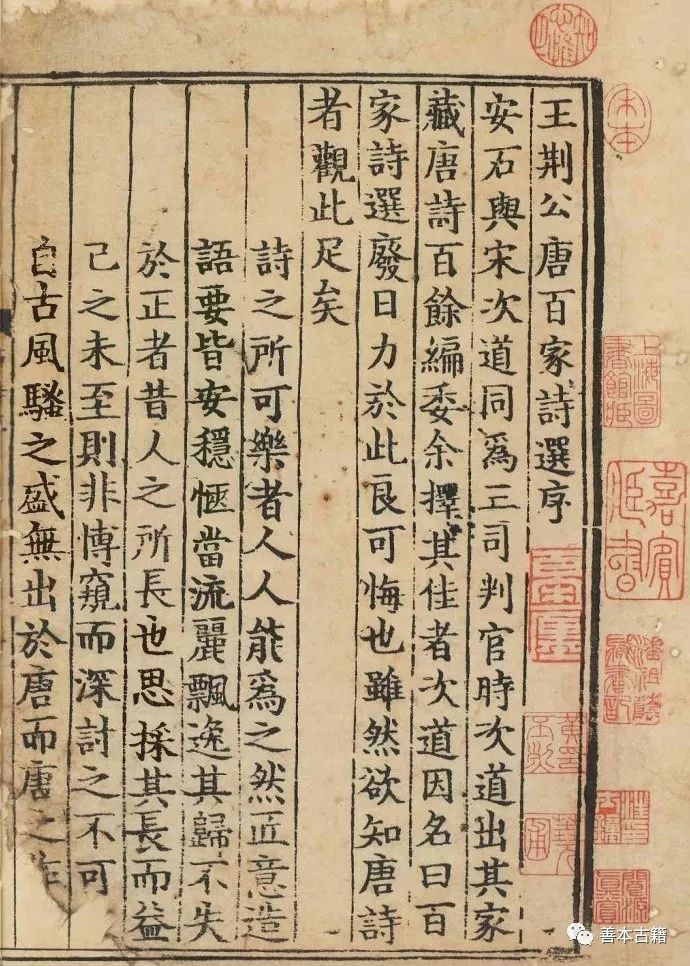 王荆公唐百家詩選序
安石與宋次道同爲三司判官時次道出其家
藏唐詩百餘編委余擇其佳者次道因名曰百
家詩選廢日力於此良可悔也雖然欲知唐詩
者觀此足矣
詩之所可樂者人人能爲之然匠意造
語要皆安穩愜當流麗飄逸其歸不失
於正者昔人之所長也思採其長而益
己之未至則非博窺而深討之不可
自古風騷之盛無出於唐而唐之作
宋本
上海圖
書館臧
嘉賓
臧書
善本古籍